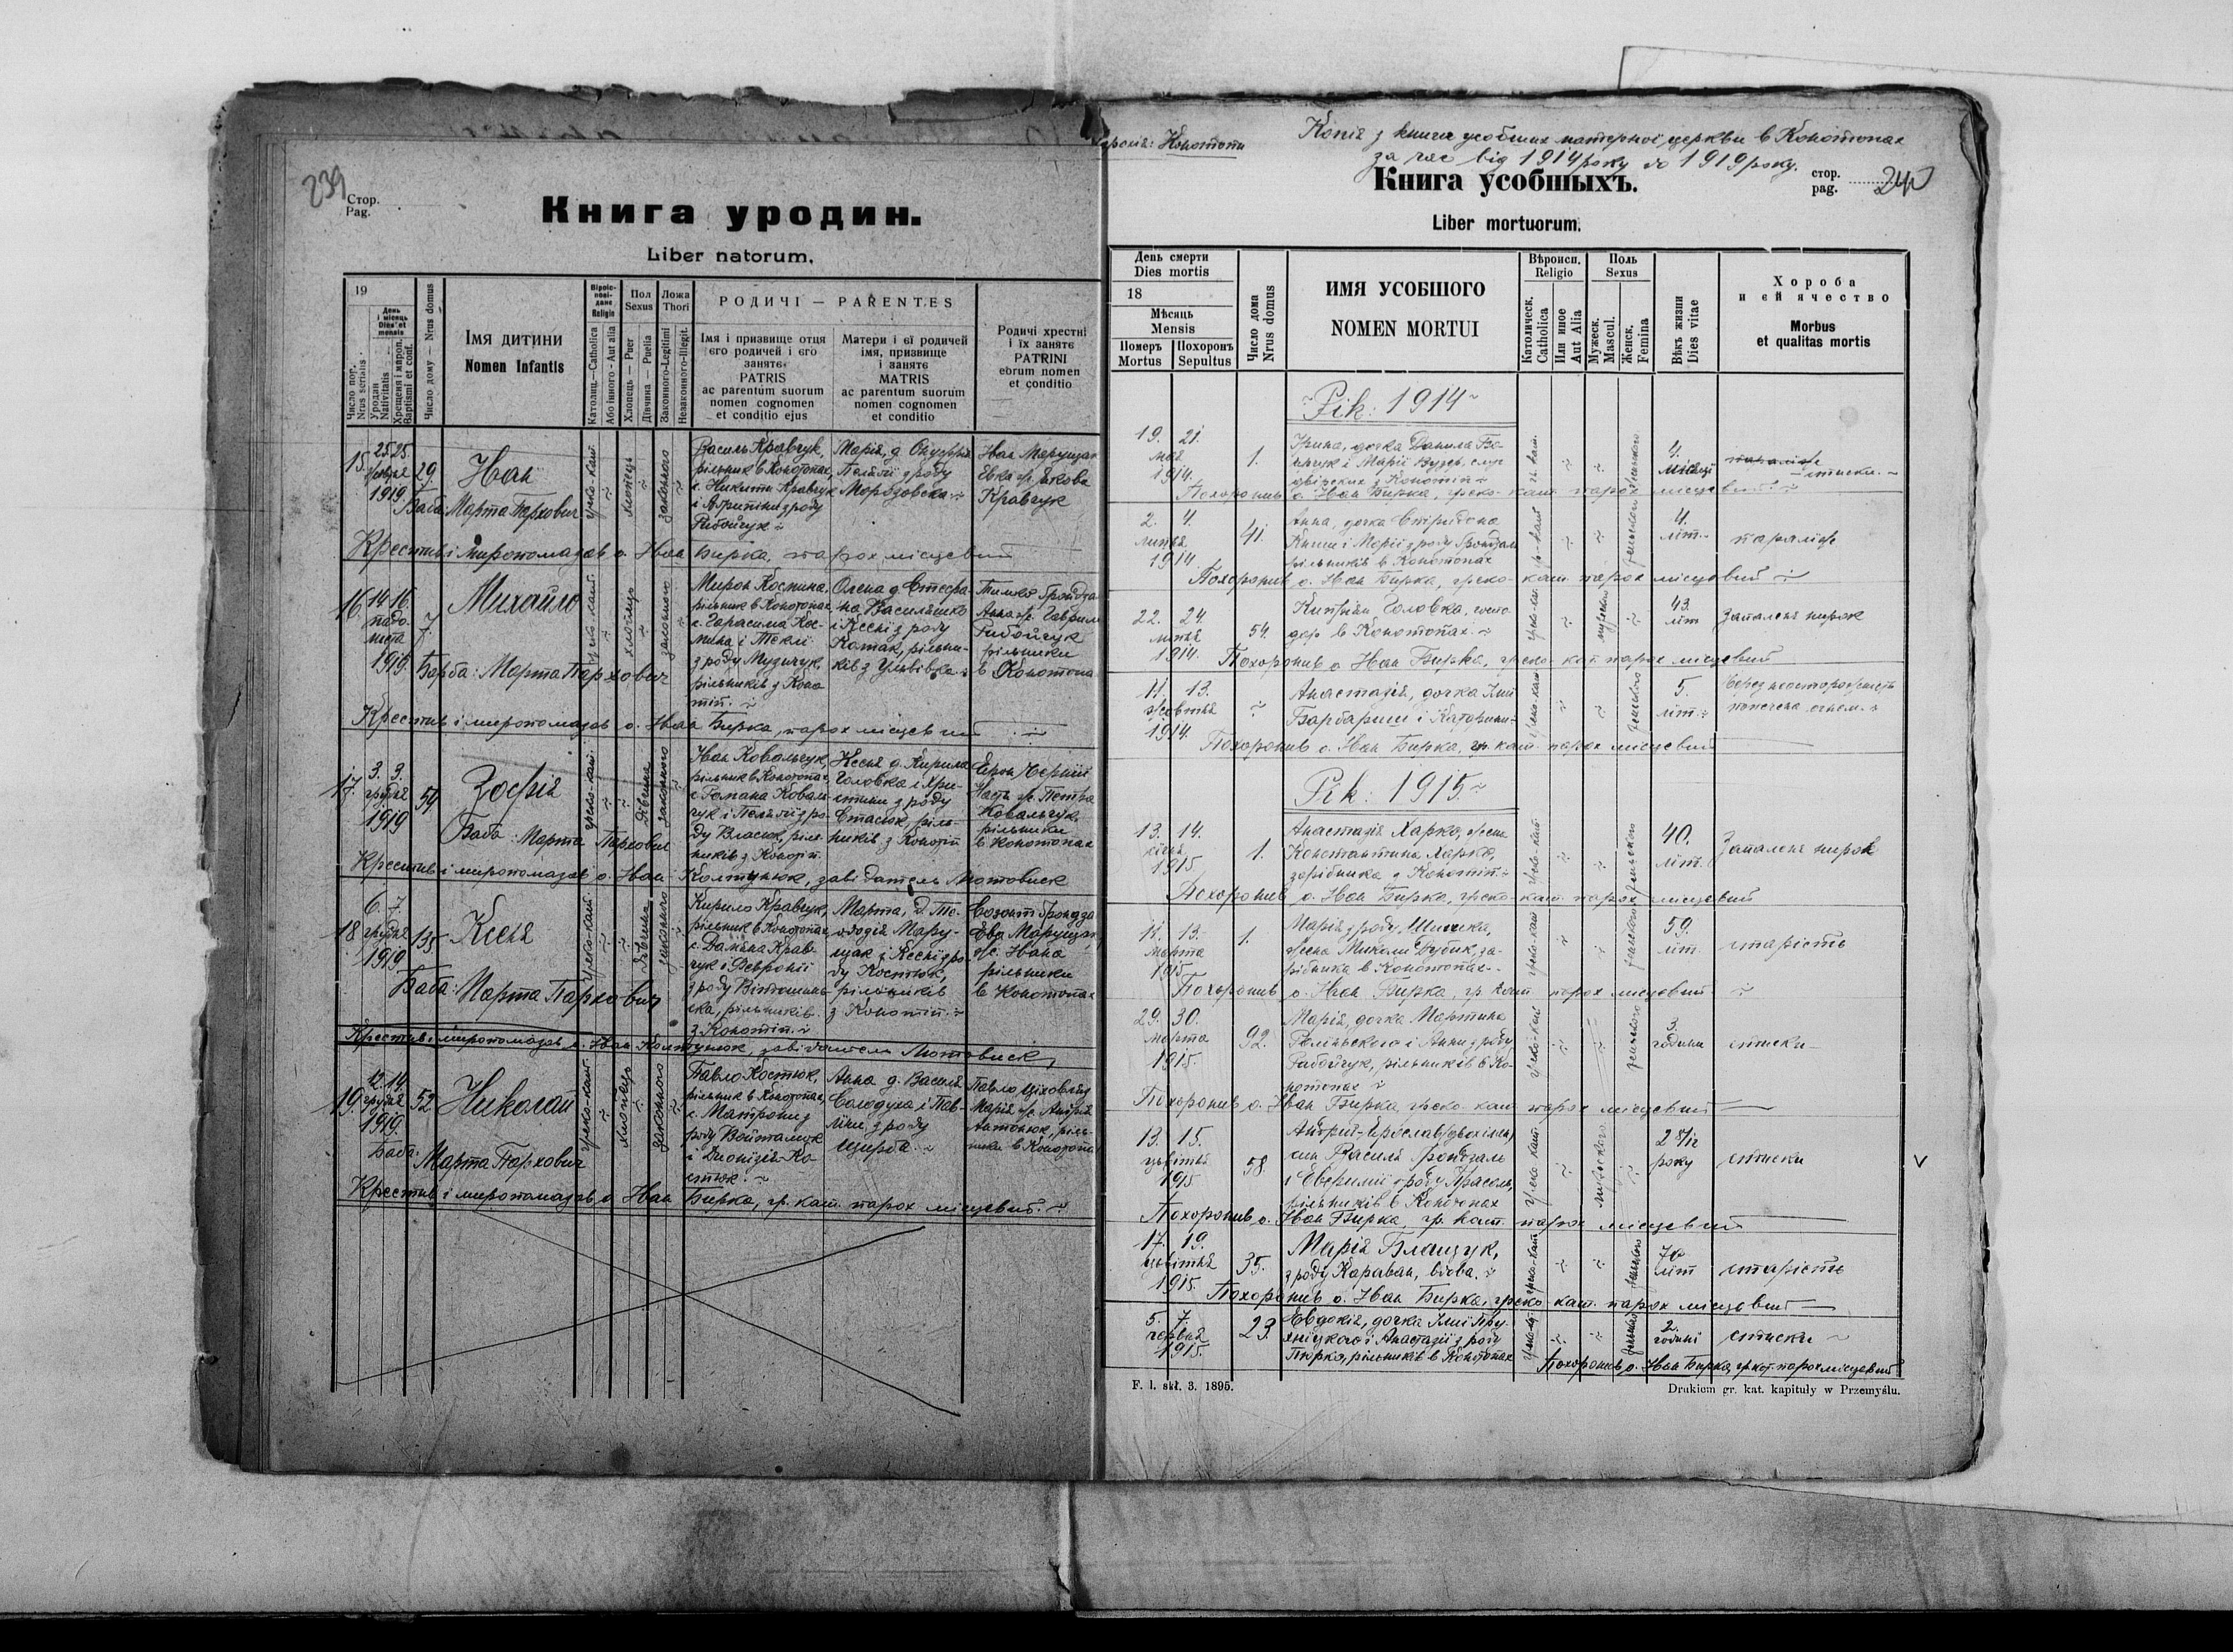 239
Стор.
Pag.
Книга уродин.
Liber natorum.
19
День і місяць
Dies et mensis
Число пор.
Nrus serialis
Уродин
Nativitatis
Хрещеня і міропом.
Baptismi et conf.
Число дому — Nrus domus
Імя дитини
Nomen Infantis
Віроісповіданє
Religio
Католиц.—Catholica
Або інного - Aut alia
Пол
Sexus
Хлопець — Puer
Дівчина — Puella
Ложа
Thori
Законного-Legitimi
Незаконного-Illegit.
РОДИЧІ — PARENTES
Імя і призвище отця
єго родичей і єго
занятє
PATRIS
ac parentum suorum
nomen cognomen
et conditio ejus
Матери і єї родичей
імя, призвище
і занятє
MATRIS
ac parentum suorum
nomen cognomen
et conditio
Родичі хрестні
і їх занятє
PATRINI
eorum nomen
et conditio
15. 25. 25.
1919.
29.
Иван
Баба: Марта Пархович
греко-кат.
хлопець
законного
Василь Кравчук,
рільник в Конотопах,
с. Никити Кравчук
з роду
Марія, д. Онуфрія
з роду
Иван Марущак
Евка ж. Якова
Кравчук
Крестив і миропомазав о. Иван Бирка, парох місцевий
16. 14. 16.
падолиста
1919.
7.
Михайло
Баба: Марта Пархович
греко-кат
хлопець
законного
Мирон Костина,
рільник в Конотопах
с. Гарасима Костина і Теклі
з роду Музичук,
рільників з Конотіп.
Олена д. Стефана Василишко
і Ксені з роду
рільників з Ульвівка
Анна ж. Гаврила
рільники
в Конотопах
Крестив і миропомазав о. Иван Бирка, парох місцевий
17. 3. 3.
грудня
1919
54
Зофія
Баба: Марта Пархович
греко-кат.
дівчина
законного
Иван Ковальчук,
рільник в Конотопах,
с. Романа Ковальчук і Пелагії з роду Власюк, рільників з Конотіп
Ксеня д. Кирила
Головка і Христини з роду
Стасюк, рільників з Конотіп
ж. Петра
Ковальчук,
рільники
в Конотопах
Крестив і миропомазав о. Иван Колтунюк, завідатель Мотовиск
18 6. 7.
грудня
1919
135
Ксеня
Баба: Марта Пархович
греко-кат
дівчина
законного
Кирило Кравчук,
рільник в Конотопах,
с. Дамяна Кравчук і Февронії
з роду
рільників
з Конотіп.
Марта, д. Теодозія Марущак і Ксені з роду Костюк,
рільників
з Конотіп.
Ева Марущак
ж. Ивана
рільники
в Конотопах
Крестив і миропомазав о. Иван Колтунюк, завідатель Мотовиск
19. 12. 14.
грудня
1919
52
Николай
Баба: Марта Пархович
греко-кат
хлопець
законного
Павло Костюк,
рільник в Конотопах,
с. Матрони з
роду Войталюк
і Дионізія Костюк.
Анна д. Василя
Солодуха і Павліни з роду
Щирба.
Марія ж. Андрія
Антонюк, рільники в Конотопах
Крестив і миропомазав о. Иван Бирка, гр. кат. парох місцевий.
Парохія: Конотопи
Копія з книги усобших матерної церкви в Конотопах
за час від 1914 року до 1919 року.
Книга усобшыхъ.
стор.
pag.
240
Liber mortuorum.
День смерти
Dies mortis
18
Мѣсяць
Mensis
Померъ
Mortus
Похоронъ
Sepultus
Число дома
Nrus domus
ИМЯ УСОБШОГО
NOMEN MORTUI
Вѣроисп.
Religio
Католическ.
Catholica
Или иное
Aut Alia
Поль
Sexus
Мужеск.
Mascul.
Женск.
Femina
Вѣкъ жизни
Dies vitae
Хороба
и єй ячество
Morbus
et qualitas mortis
Рік: 1914
19. 21.
мая
1914.
1.
Ирина, дочка Данила
і Марії
двірских з Конотіп
4.
місяці
стиски.
Похоронив о. Иван Бирка, греко-кат. парох місцевий.
2. 4.
липня
1914.
41.
Анна, дочка Спиридона
і Марії з роду Грондзаль
рільників в Конотопах
4.
літ.
параліж
Похоронив о. Иван Бирка, греко-кат. парох місцевий
22. 24.
липня
1914.
54.
Кипріян Головка, господар в Конотопах.
мужеского
43.
літ
Запаленя нирок
Похоронив о. Иван Бирка, греко-кат. парох місцевий
11. 13.
жовтня
1914.
Анастазія, дочка Ілиї
Барбариш і Катарини
женьского
5.
літ.
Через неосторожність
попечена огнем.
Похоронив о. Иван Бирка, гр. кат. парох місцевий
Рік: 1915.
13. 14.
січня
1915
1.
Анастазія Харко, жена
Константина Харко,
зарібника з Конотіп
женьского
40.
літ.
Запаленя нирок
Похоронив о. Иван Бирка, греко-кат. парох місцевий
11. 13.
марта
1915
1.
Марія з роду Шишка,
жена Миколи Дубик, зарібника в Конотопах.
59.
літ.
старість
Похоронив о. Иван Бирка, гр. кат. парох місцевий
29. 30.
марта
1915.
92.
Марія, дочка Мартина
і Анни з роду
Рабойчук, рільників в Конотопах
3
години
стиски
Похоронив о. Иван Бирка, греко-кат. парох місцевий
13. 15.
цьвітня
1915
58
Андрій-Ярослав (двохімен)
син Василя Грондзаль
і Евфимії з роду Красоль,
рільників в Конотопах
мужеского
2 8/12
року
стиски
Похоронив о. Иван Бирка, гр. кат. парох місцевий
17. 19.
цьвітня
1915.
35.
Марія Блащук,
з роду Караван, вдова.
70
літ
старість
Похоронив о. Иван Бирка, греко-кат. парох місцевий
5. 7.
червня
1915.
23.
Евдокія, дочка Ілиї
і Анастазії з роду
Пюрко, рільників в Конотопах
2.
годині
стиски
Похоронив о. Иван Бирка, гр. кат. парох місцевий
F. l. skł. 3. 1895.
Drukiem gr. kat. kapituły w Przemyślu.